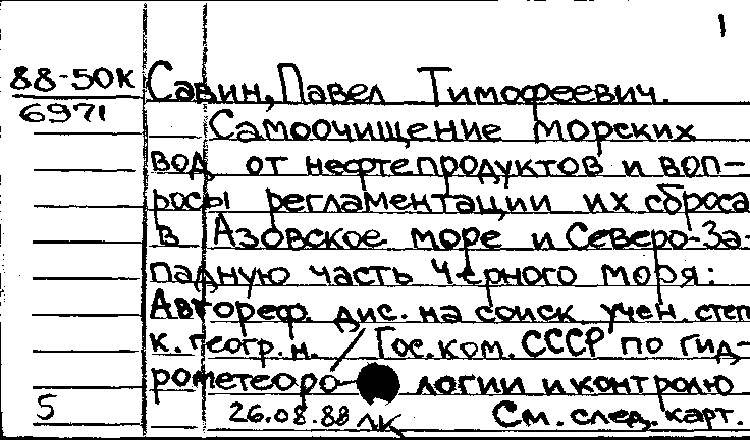 1
88-50К Савин, Павел Тимофеевич.
6971
Самоочищение морских
вод от нефтепродуктов и воп-
росы регламентации их сброса
в Азовское море и Северо-За-
падную часть Черного моря:
Автореф. дис. на соиск учен. степ
к. геогр. н. / Гос. ком. СССР по гид-
рометеоро- логии и контролю
5 26.08.88 ЛК См. след. карт.